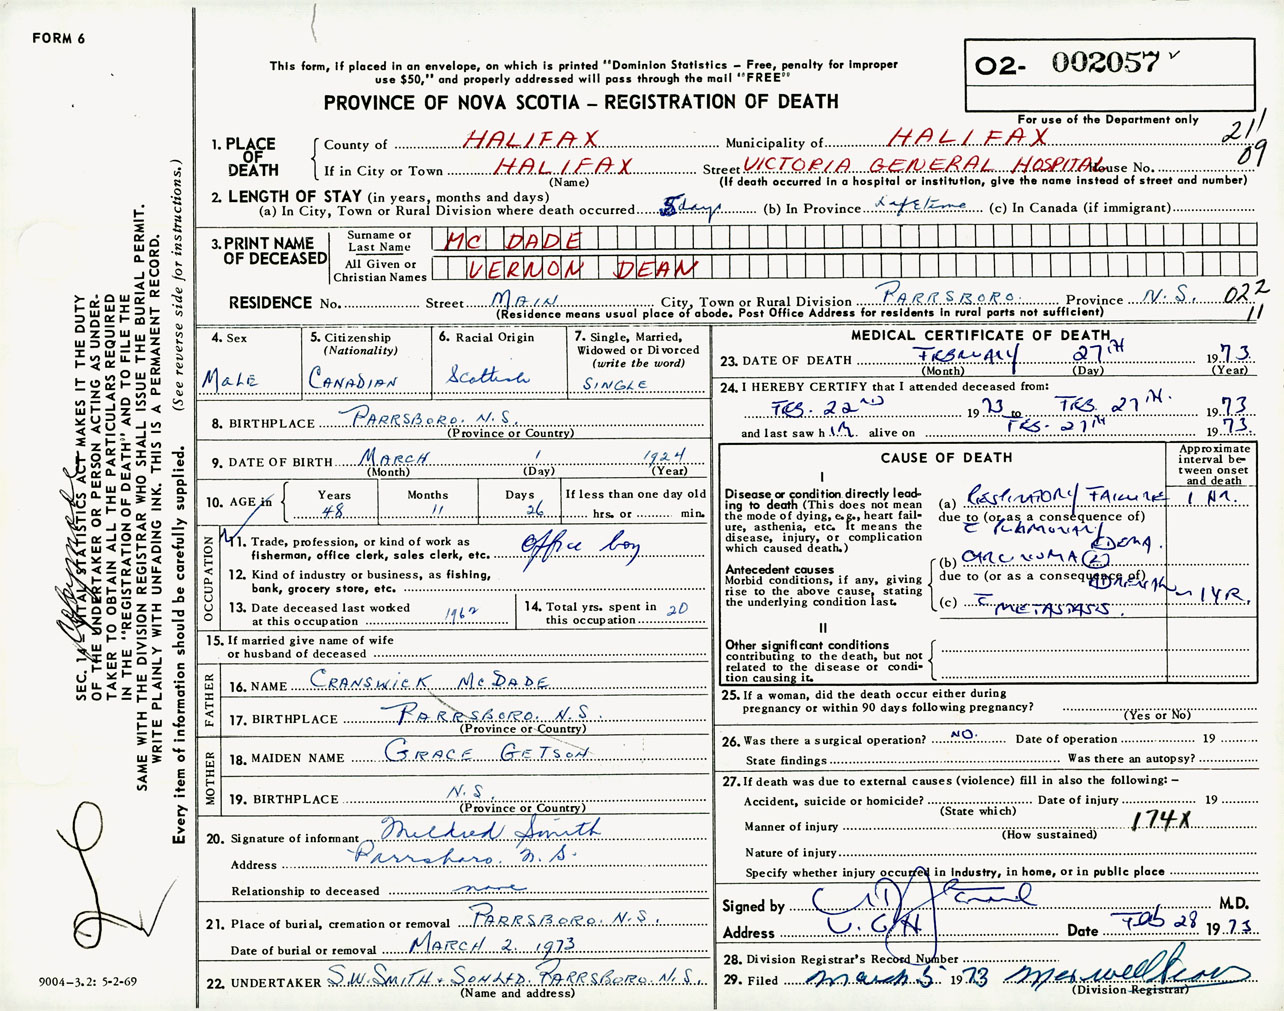 FORM 6
This form, if placed in an envelope, on which is printed "Dominion Statistics – Free, penalty for improper
use $50," and properly addressed will pass through the mail "FREE"
PROVINCE OF NOVA SCOTIA – REGISTRATION OF DEATH
02- 002057
For use of the Department only
211
09
1. PLACE OF DEATH
County of HALIFAX Municipality of HALIFAX
If in City or Town HALIFAX Street VICTORIA GENERAL HOSPITAL House No.
(Name) (If death occurred in a hospital or institution, give the name instead of street and number)
2. LENGTH OF STAY (in years, months and days)
(a) In City, Town or Rural Division where death occurred 5 days (b) In Province Lifetime (c) In Canada (if immigrant)
3. PRINT NAME OF DECEASED
Surname or Last Name MC DADE
All Given or Christian Names VERNON DEAN
RESIDENCE No. Street MAIN City, Town or Rural Division PARRSBORO. Province N.S. 022
(Residence means usual place of abode. Post Office Address for residents in rural parts not sufficient) 11
4. Sex
MALE
5. Citizenship
(Nationality)
CANADIAN
6. Racial Origin
Scottish
7. Single, Married,
Widowed or Divorced
(write the word)
SINGLE
8. BIRTHPLACE PARRSBORO. N.S.
(Province or Country)
9. DATE OF BIRTH MARCH 1 1924
(Month) (Day) (Year)
10. AGE in
Years Months Days If less than one day old
48 11 26 hrs. or min.
OCCUPATION
11. Trade, profession, or kind of work as
fisherman, office clerk, sales clerk, etc. Office boy
12. Kind of industry or business, as fishing,
bank, grocery store, etc.
13. Date deceased last worked
at this occupation 1962
14. Total yrs. spent in
this occupation 20
15. If married give name of wife
or husband of deceased
FATHER
16. NAME CRANSWICK MCDADE
17. BIRTHPLACE PARRSBORO. N.S.
(Province or Country)
MOTHER
18. MAIDEN NAME GRACE GETSON
19. BIRTHPLACE N.S.
(Province or Country)
20. Signature of informant Mildred Smith
Address Parrsboro. N.S.
Relationship to deceased none
21. Place of burial, cremation or removal PARRSBORO. N.S.
Date of burial or removal MARCH 2. 1973
22. UNDERTAKER S.W. SMITH + SON LTD. PARRSBORO. N.S.
(Name and address)
MEDICAL CERTIFICATE OF DEATH
23. DATE OF DEATH FEBRUARY 27TH 1973.
(Month) (Day) (Year)
24. I HEREBY CERTIFY that I attended deceased from:
FEB. 22ND 1973 to FEB. 27TH. 1973
and last saw him alive on FEB. 27TH 1973.
CAUSE OF DEATH
Approximate
interval be-
tween onset
and death
I
Disease or condition directly lead-
ing to death (This does not mean
the mode of dying, e.g., heart fail-
ure, asthenia, etc. It means the
disease, injury, or complication
which caused death.)
(a) RESPIRATORY FAILURE 1 HR.
due to (or as a consequence of)
c PULMONARY
EDEMA.
Antecedent causes
Morbid conditions, if any, giving
rise to the above cause, stating
the underlying condition last.
(b) CARCINOMA (L)
due to (or as a consequence of)
(c) c METASTASIS. 1 YR.
II
Other significant conditions
contributing to the death, but not
related to the disease or condi-
tion causing it.
25. If a woman, did the death occur either during
pregnancy or within 90 days following pregnancy?
(Yes or No)
26. Was there a surgical operation? NO. Date of operation 19
State findings Was there an autopsy?
27. If death was due to external causes (violence) fill in also the following: –
Accident, suicide or homicide? Date of injury 19
(State which)
Manner of injury 174X
(How sustained)
Nature of injury
Specify whether injury occurred in industry, in home, or in public place
Signed by M.D.
Address V.G.H Date Feb 28 1973.
28. Division Registrar's Record Number
29. Filed March 5 1973
(Division Registrar)
SEC. 14 – VITAL STATISTICS ACT MAKES IT THE DUTY
OF THE UNDERTAKER OR PERSON ACTING AS UNDER-
TAKER TO OBTAIN ALL THE PARTICULARS REQUIRED
IN THE "REGISTRATION OF DEATH" AND TO FILE THE
SAME WITH THE DIVISION REGISTRAR WHO SHALL ISSUE THE BURIAL PERMIT.
WRITE PLAINLY WITH UNFADING INK. THIS IS A PERMANENT RECORD.
Every item of information should be carefully supplied. (See reverse side for instructions.)
9004–3.2: 5-2-69